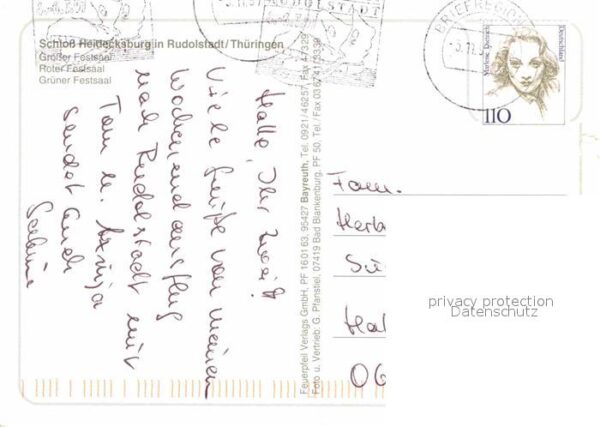 Schloß Heidecksburg in Rudolstadt/Thüringen
Großer Festsaal
Roter Festsaal
Grüner Festsaal
Hallo, Ihr zwei!
Viele Grüße von meinem
Wochenendausflug
nach Rudolstadt mit
Tom u.
sendet Euch
Sabine
Feuerpfeil Verlags GmbH, PF 16 01 63, 95427 Bayreuth, Tel. 0921/46257, Fax 4 7329
Foto u. Vertrieb: G. Pfanstiel, 07419 Bad Blankenburg, PF 50, Tel./Fax 03 67 41/35 39
BRIEFREGION
Marlene Dietrich
Deutschland
110
Fam.
Herb
Sü
Hal
06
privacy protection
Datenschutz